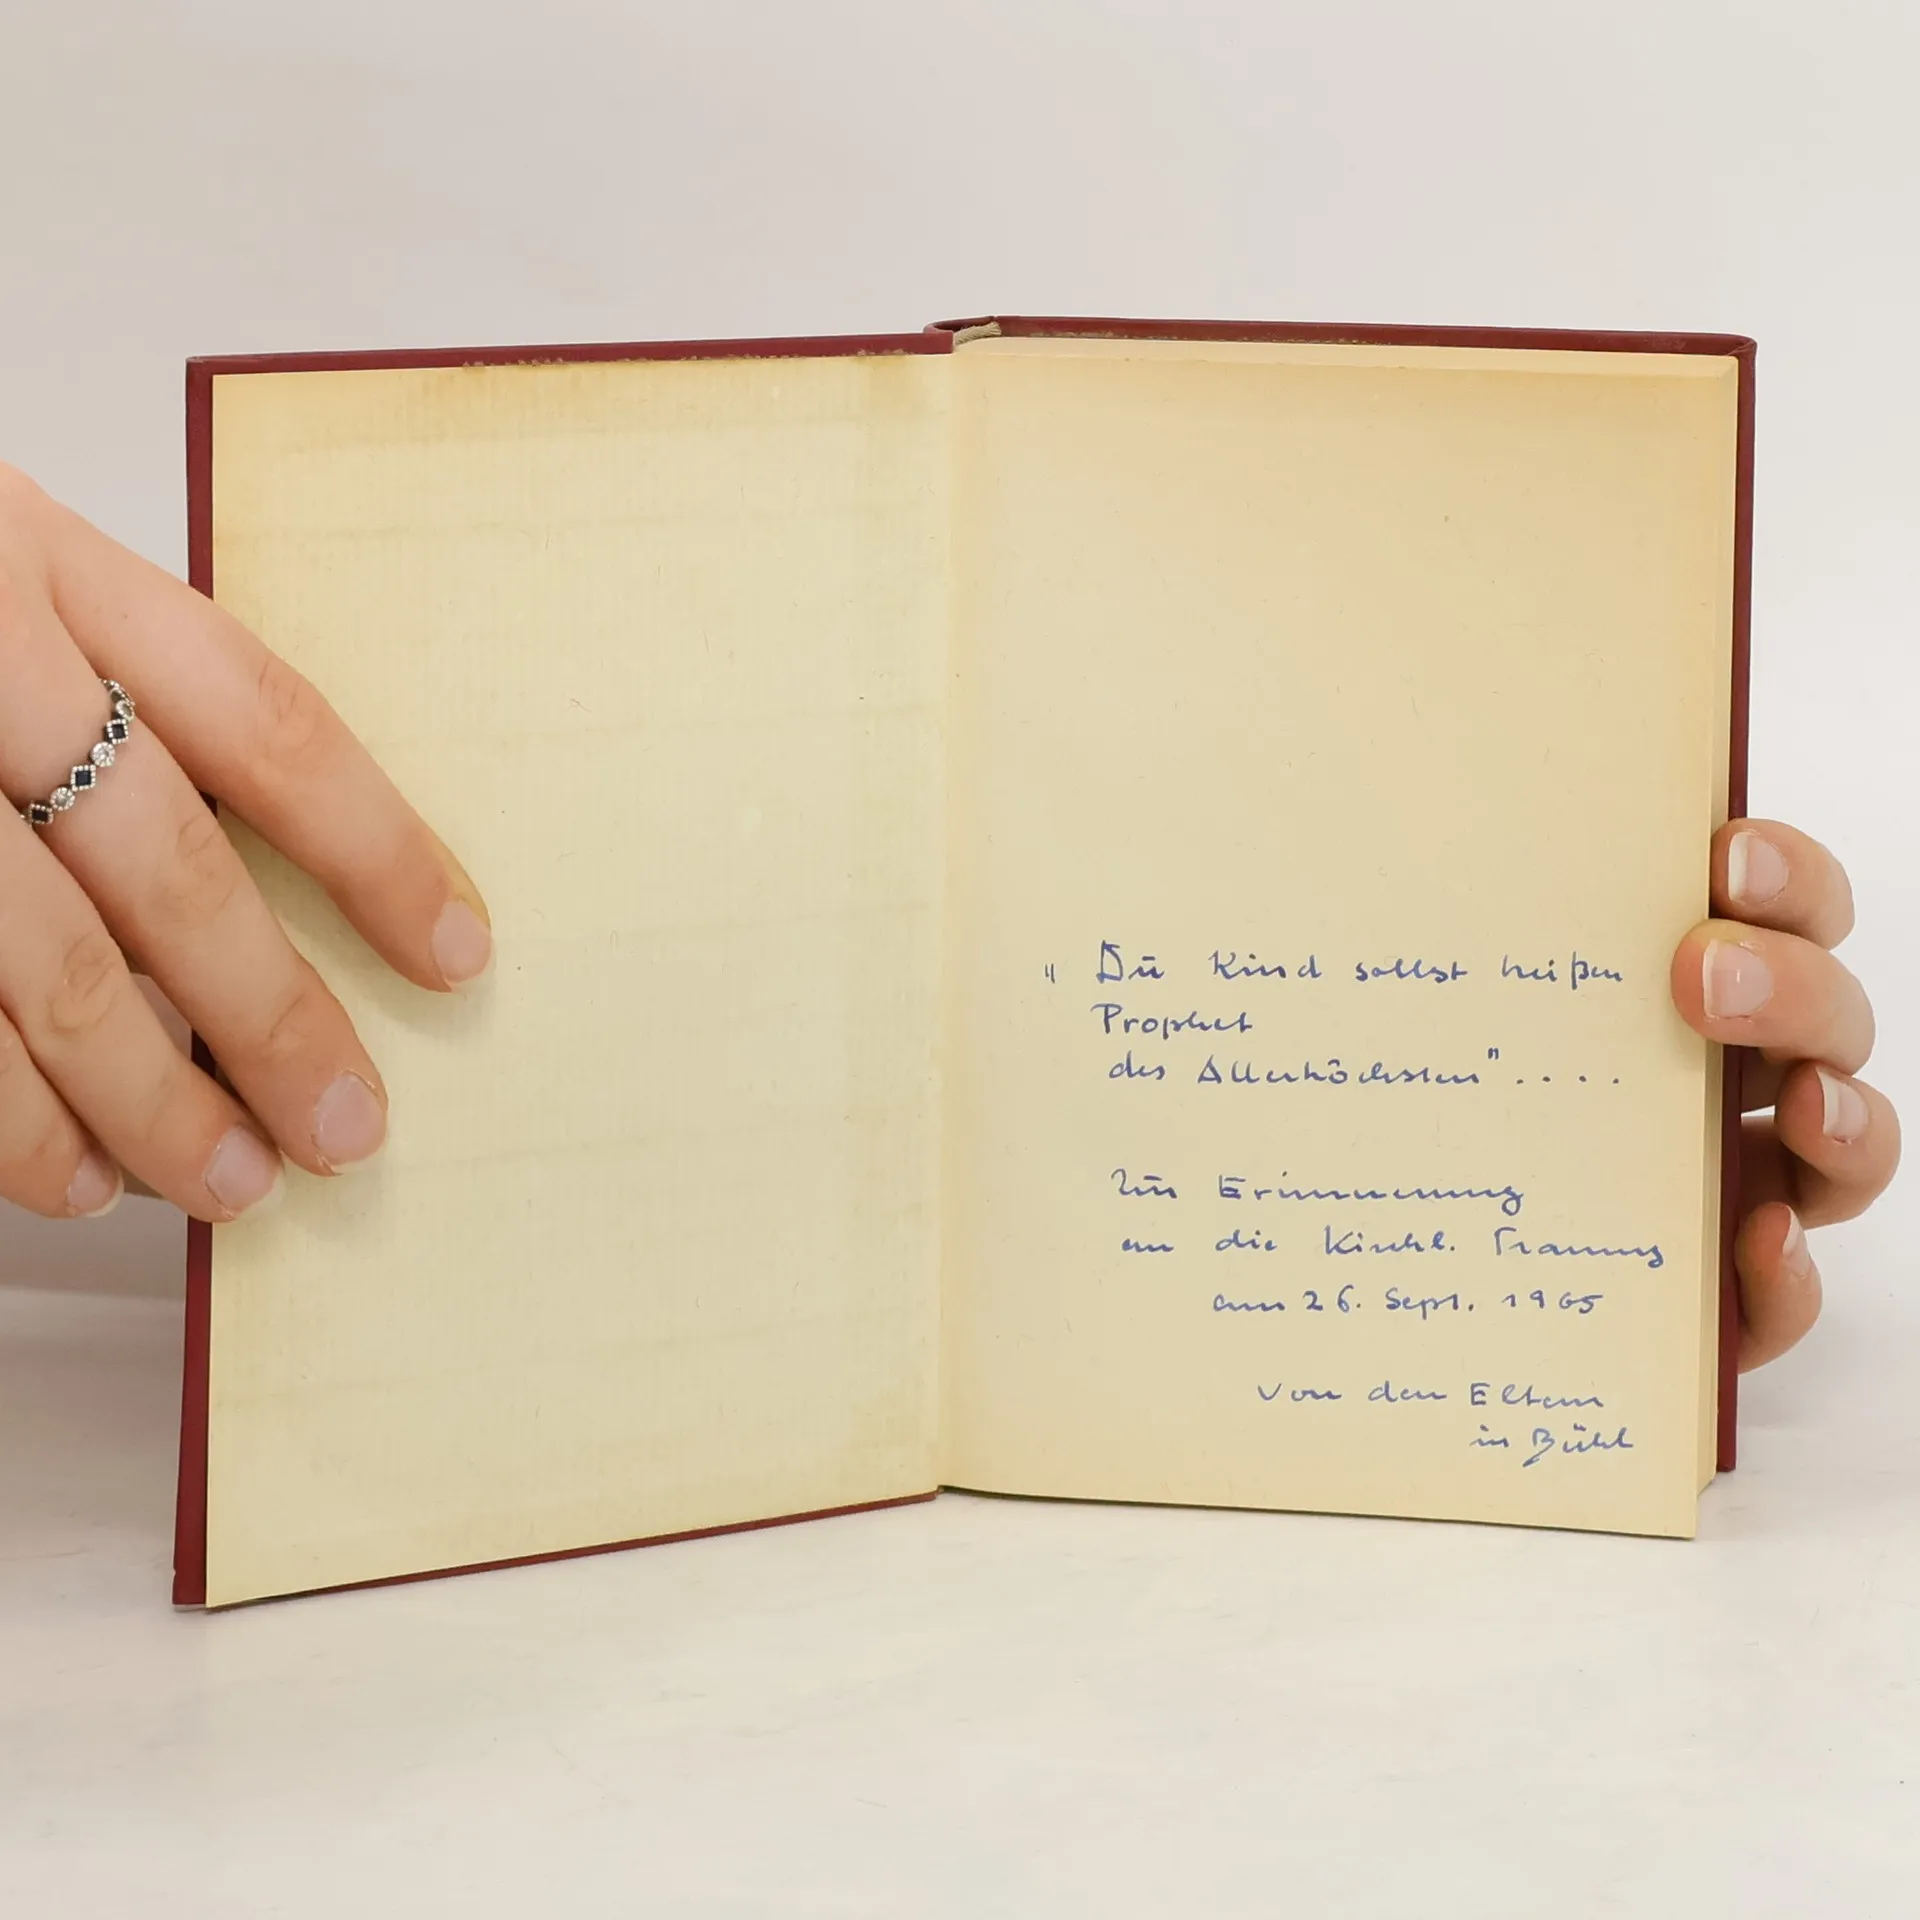 " Du Kind sollst heißen
Prophet
des Allerhöchsten"....
Zur Erinnerung
an die Kirchl. Trauung
am 26. Sept. 1965
Von den Eltern
in Bühl